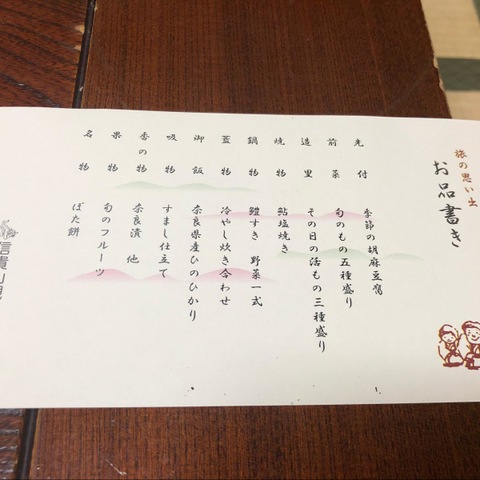 旅の思い出
お品書き
先付 季節の胡麻豆腐
前菜 旬のもの五種盛り
造里 その日の活もの三種盛り
焼物 鮎塩焼き
鍋物 鱧すき 野菜一式
蓋物 冷やし炊き合わせ
御飯 奈良県産ひのひかり
吸物 すまし仕立て
香の物 奈良漬 他
果物 旬のフルーツ
名物 ぼた餅
信貴山観